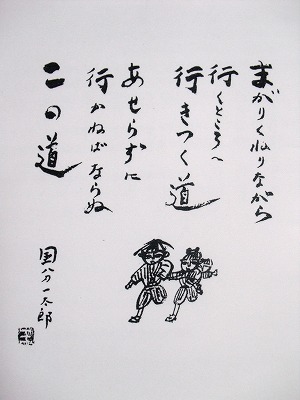 まがりくねりながら
行くところへ
行きつく道
あせらずに
行かねばならぬ
この道
国分一太郎